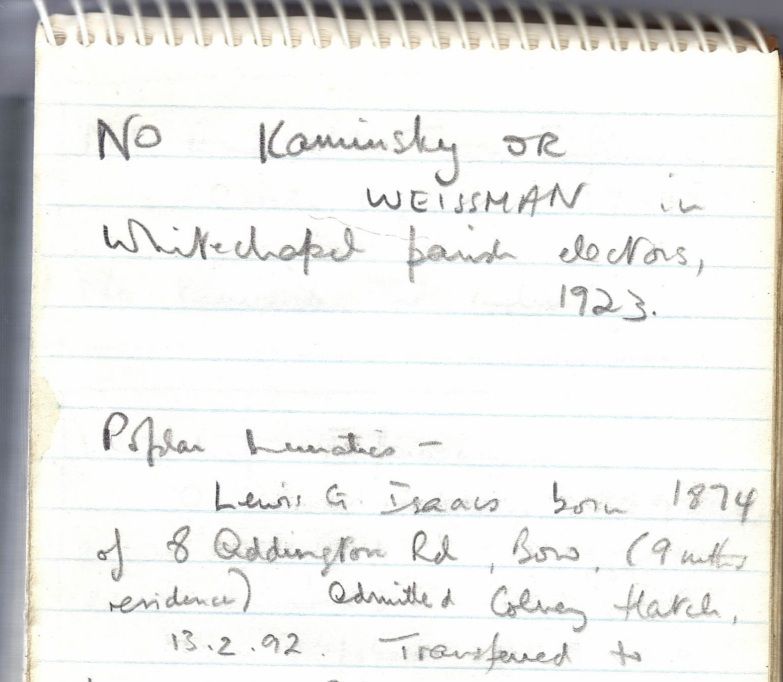 No Kaminsky OR
WEISSMAN in
Whitechapel parish electors,
1923.
Poplar Lunatics -
Lewis G. Isaacs born 1874
of 8 Addington Rd, Bow, (9 mths
residence) Admitted Colney Hatch,
13.2.92. Transferred to